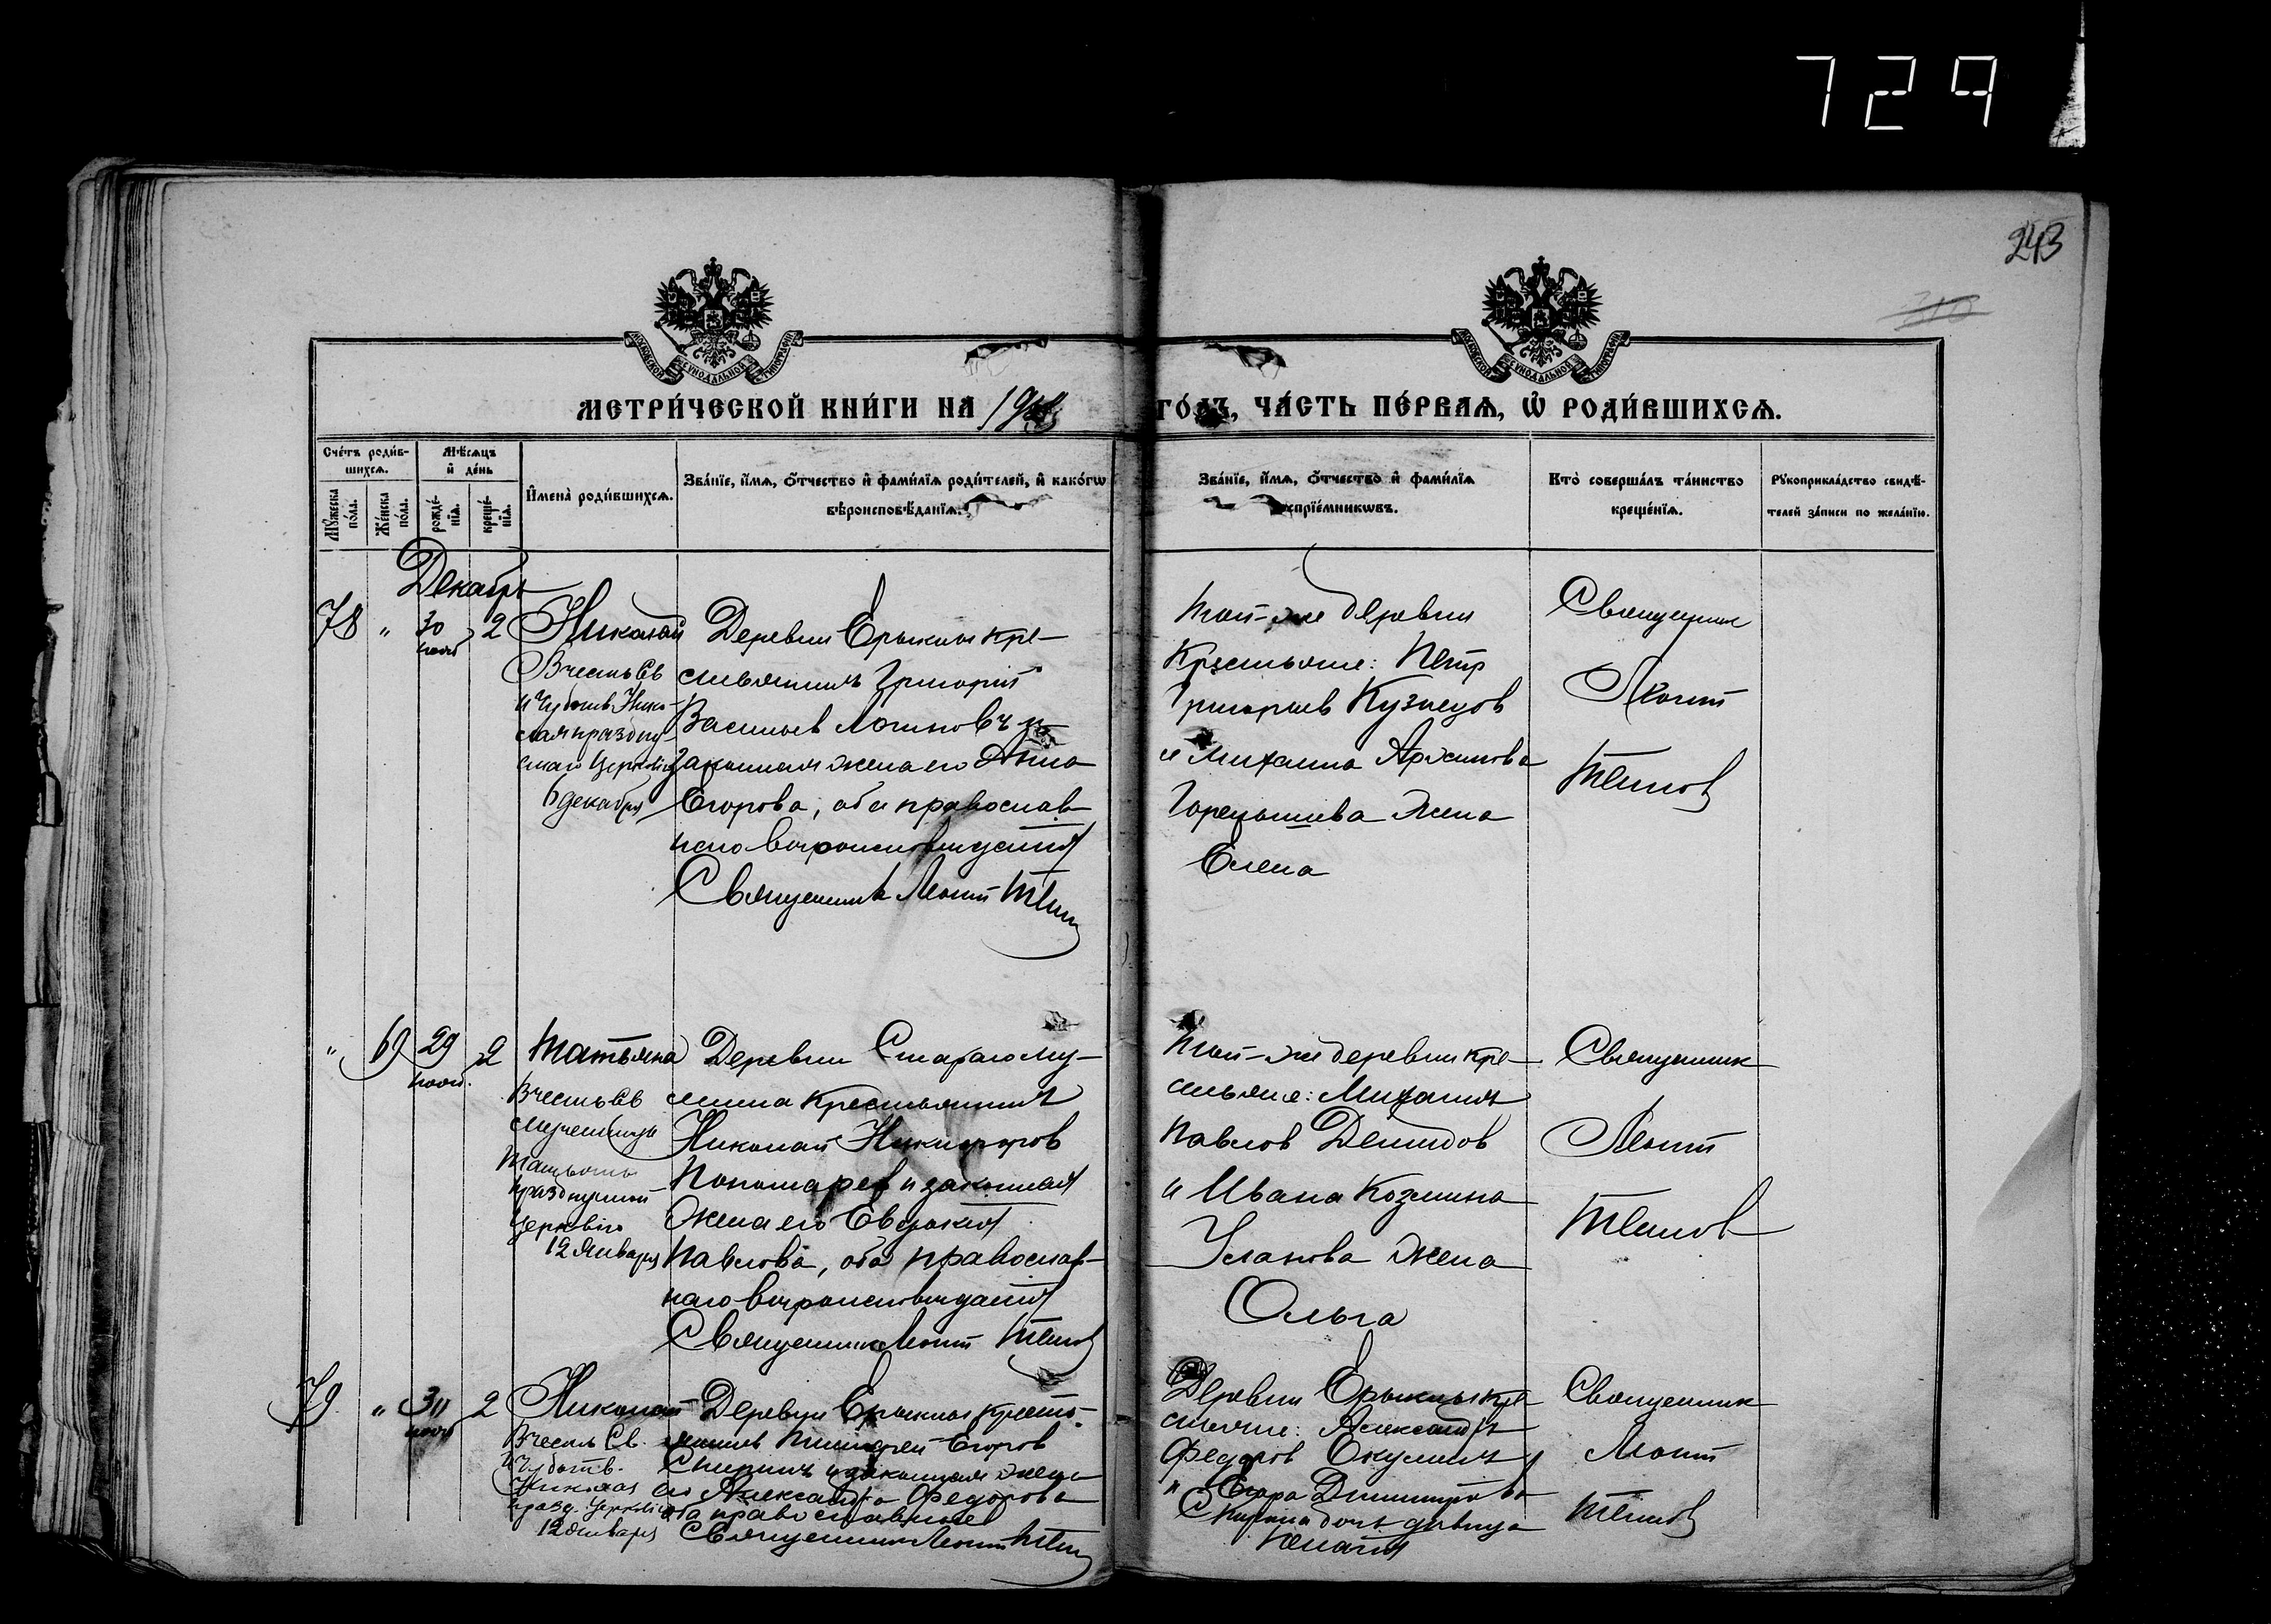 729
243
МОСКОВСКОЙ СѴНОДАЛЬНОЙ ТИПОГРАФІИ
МОСКОВСКОЙ СѴНОДАЛЬНОЙ ТИПОГРАФІИ
МЕТРИ́ЧЕСКОЙ КНИ́ГИ НА 19
ГО́ДЪ, ЧА́СТЬ ПЕ́РВАѦ, Ѽ РОДИ́ВШИХСѦ.
Сче́тъ роди́в-
шихсѧ.
Мѣ́сѧцъ
и҆ де́нь
Мꙋ́жеска
по́ла.
Же́нска
по́ла.
рожде́-
нїѧ.
креще́-
нїѧ.
И҆мена̀ роди́вшихсѧ.
Зва́нїе, и҆́мѧ, ѻ҆́тчество и҆ фами́лїѧ роди́телей, и҆ како́гѡ
вѣроисповѣ́данїѧ.
Зва́нїе, и҆́мѧ, ѻ҆́тчество и҆ фами́лїѧ
спрїе́мникѡвъ.
Кто̀ соверша́лъ та́инство
креще́нїѧ.
Рꙋкоприкла́дство свидѣ́-
телей за́писи по жела́нїю.
Декабрь
78 " 30 2 Николай
нояб
В честь Св
и Чудотв. Нико-
лая праздну-
емаго Церковію
6 декабря
Деревни Ерыклы кре-
стьянинъ Григорій
Васильев Логиновъ и
законная жена его Анна
Егорова, оба православ-
наго вѣроисповѣданія
Священникъ Леонт
Той-же деревни
Крестьяне: Петр
Григорьев Кузнецов
и Михаила Архипова
жена
Елена
Священник
Леонт
" 69 29 2 Татьяна
нояб.
В честь Св
мученицы
Татьяны
празднуемой
Церковію
12 Января
Деревни Стараго Му-
лина Крестьянинъ
Николай Никифоров
Пономарев и законная
жена его Евдокія
Павлова, оба православ-
наго вѣроисповѣданія
Священник Леонт
Той-же деревни кре-
стьяне: Михаилъ
Павлов Демидов
и Ивана Козмина
Уланова жена
Ольга
Священник
Леонт
79 " 30 2 Николай
нояб
В честь Св.
и Чудотв.
Николая
празд. Церковію
12 Января
Деревни Ерыклы кресть-
янинъ Егоров
Спиринъ и законная жена
его Александра Федорова
оба православные
Священник Леонт
Деревни Ерыклы кре-
стьяне: Александръ
Федоров
и Егора Димитріева
Спирина дочь девица
Священник
Леонт